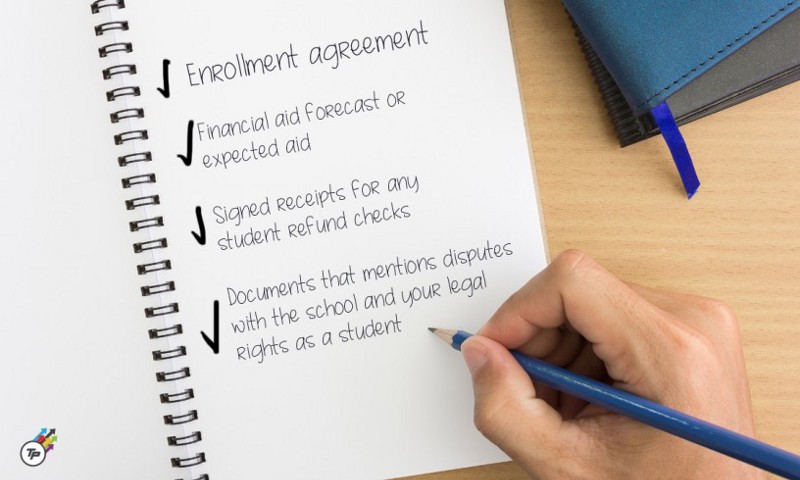 Enrollment agreement
Financial aid forecast or
expected aid
Signed receipts for any
student refund checks
Documents that mentions disputes
with the school and your legal
Rights as a student
TP